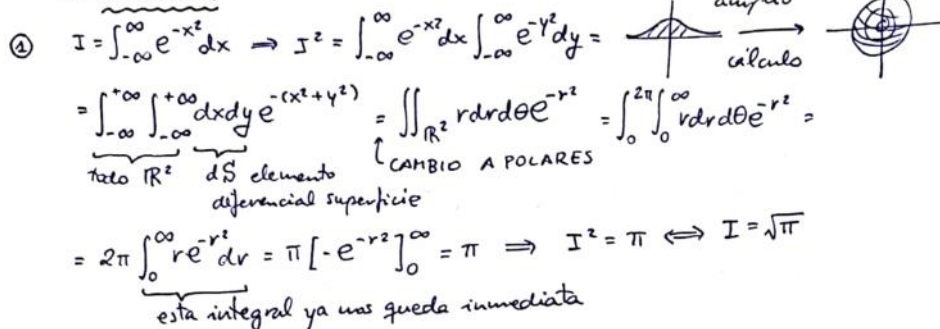 amplío
① I = ∫_{-∞}^{∞} e^{-x²} dx ⇒ I² = ∫_{-∞}^{∞} e^{-x²} dx ∫_{-∞}^{∞} e^{-y²} dy =
cálculo
= ∫_{-∞}^{+∞} ∫_{-∞}^{+∞} dxdy e^{-(x²+y²)} = ∬_{ℝ²} rdrdθ e^{-r²} = ∫_0^{2π} ∫_0^∞ rdrdθ e^{-r²} =
todo ℝ² dS elemento
diferencial superficie
CAMBIO A POLARES
= 2π ∫_0^∞ r e^{-r²} dr = π [-e^{-r²}]_0^∞ = π ⇒ I² = π ⟺ I = √π
esta integral ya nos queda inmediata